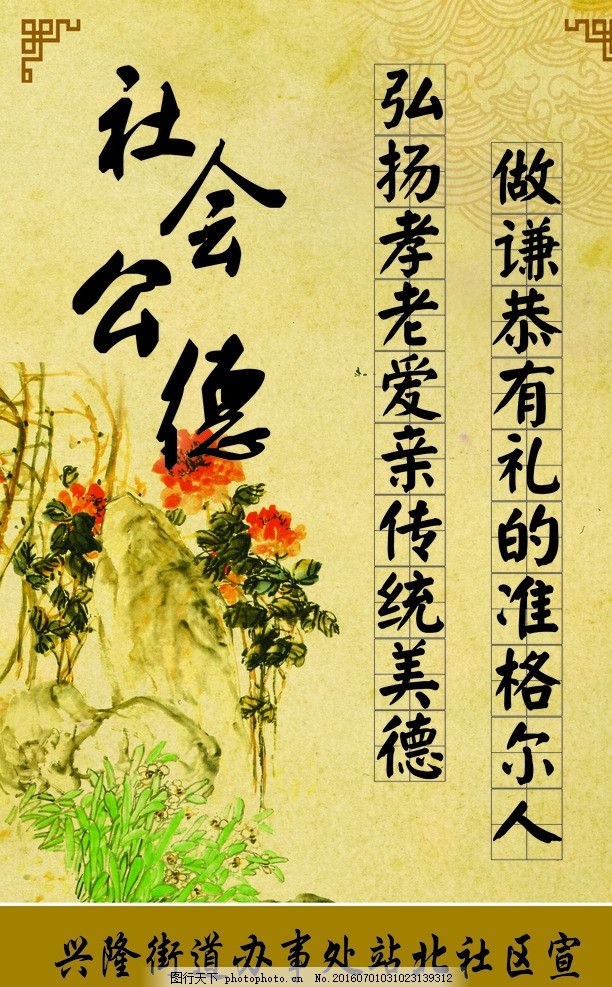 社会公德
弘扬孝老爱亲传统美德
做谦恭有礼的准格尔人
兴隆街道办事处站北社区宣
图行天下 photophoto.cn No.20160701031023139312